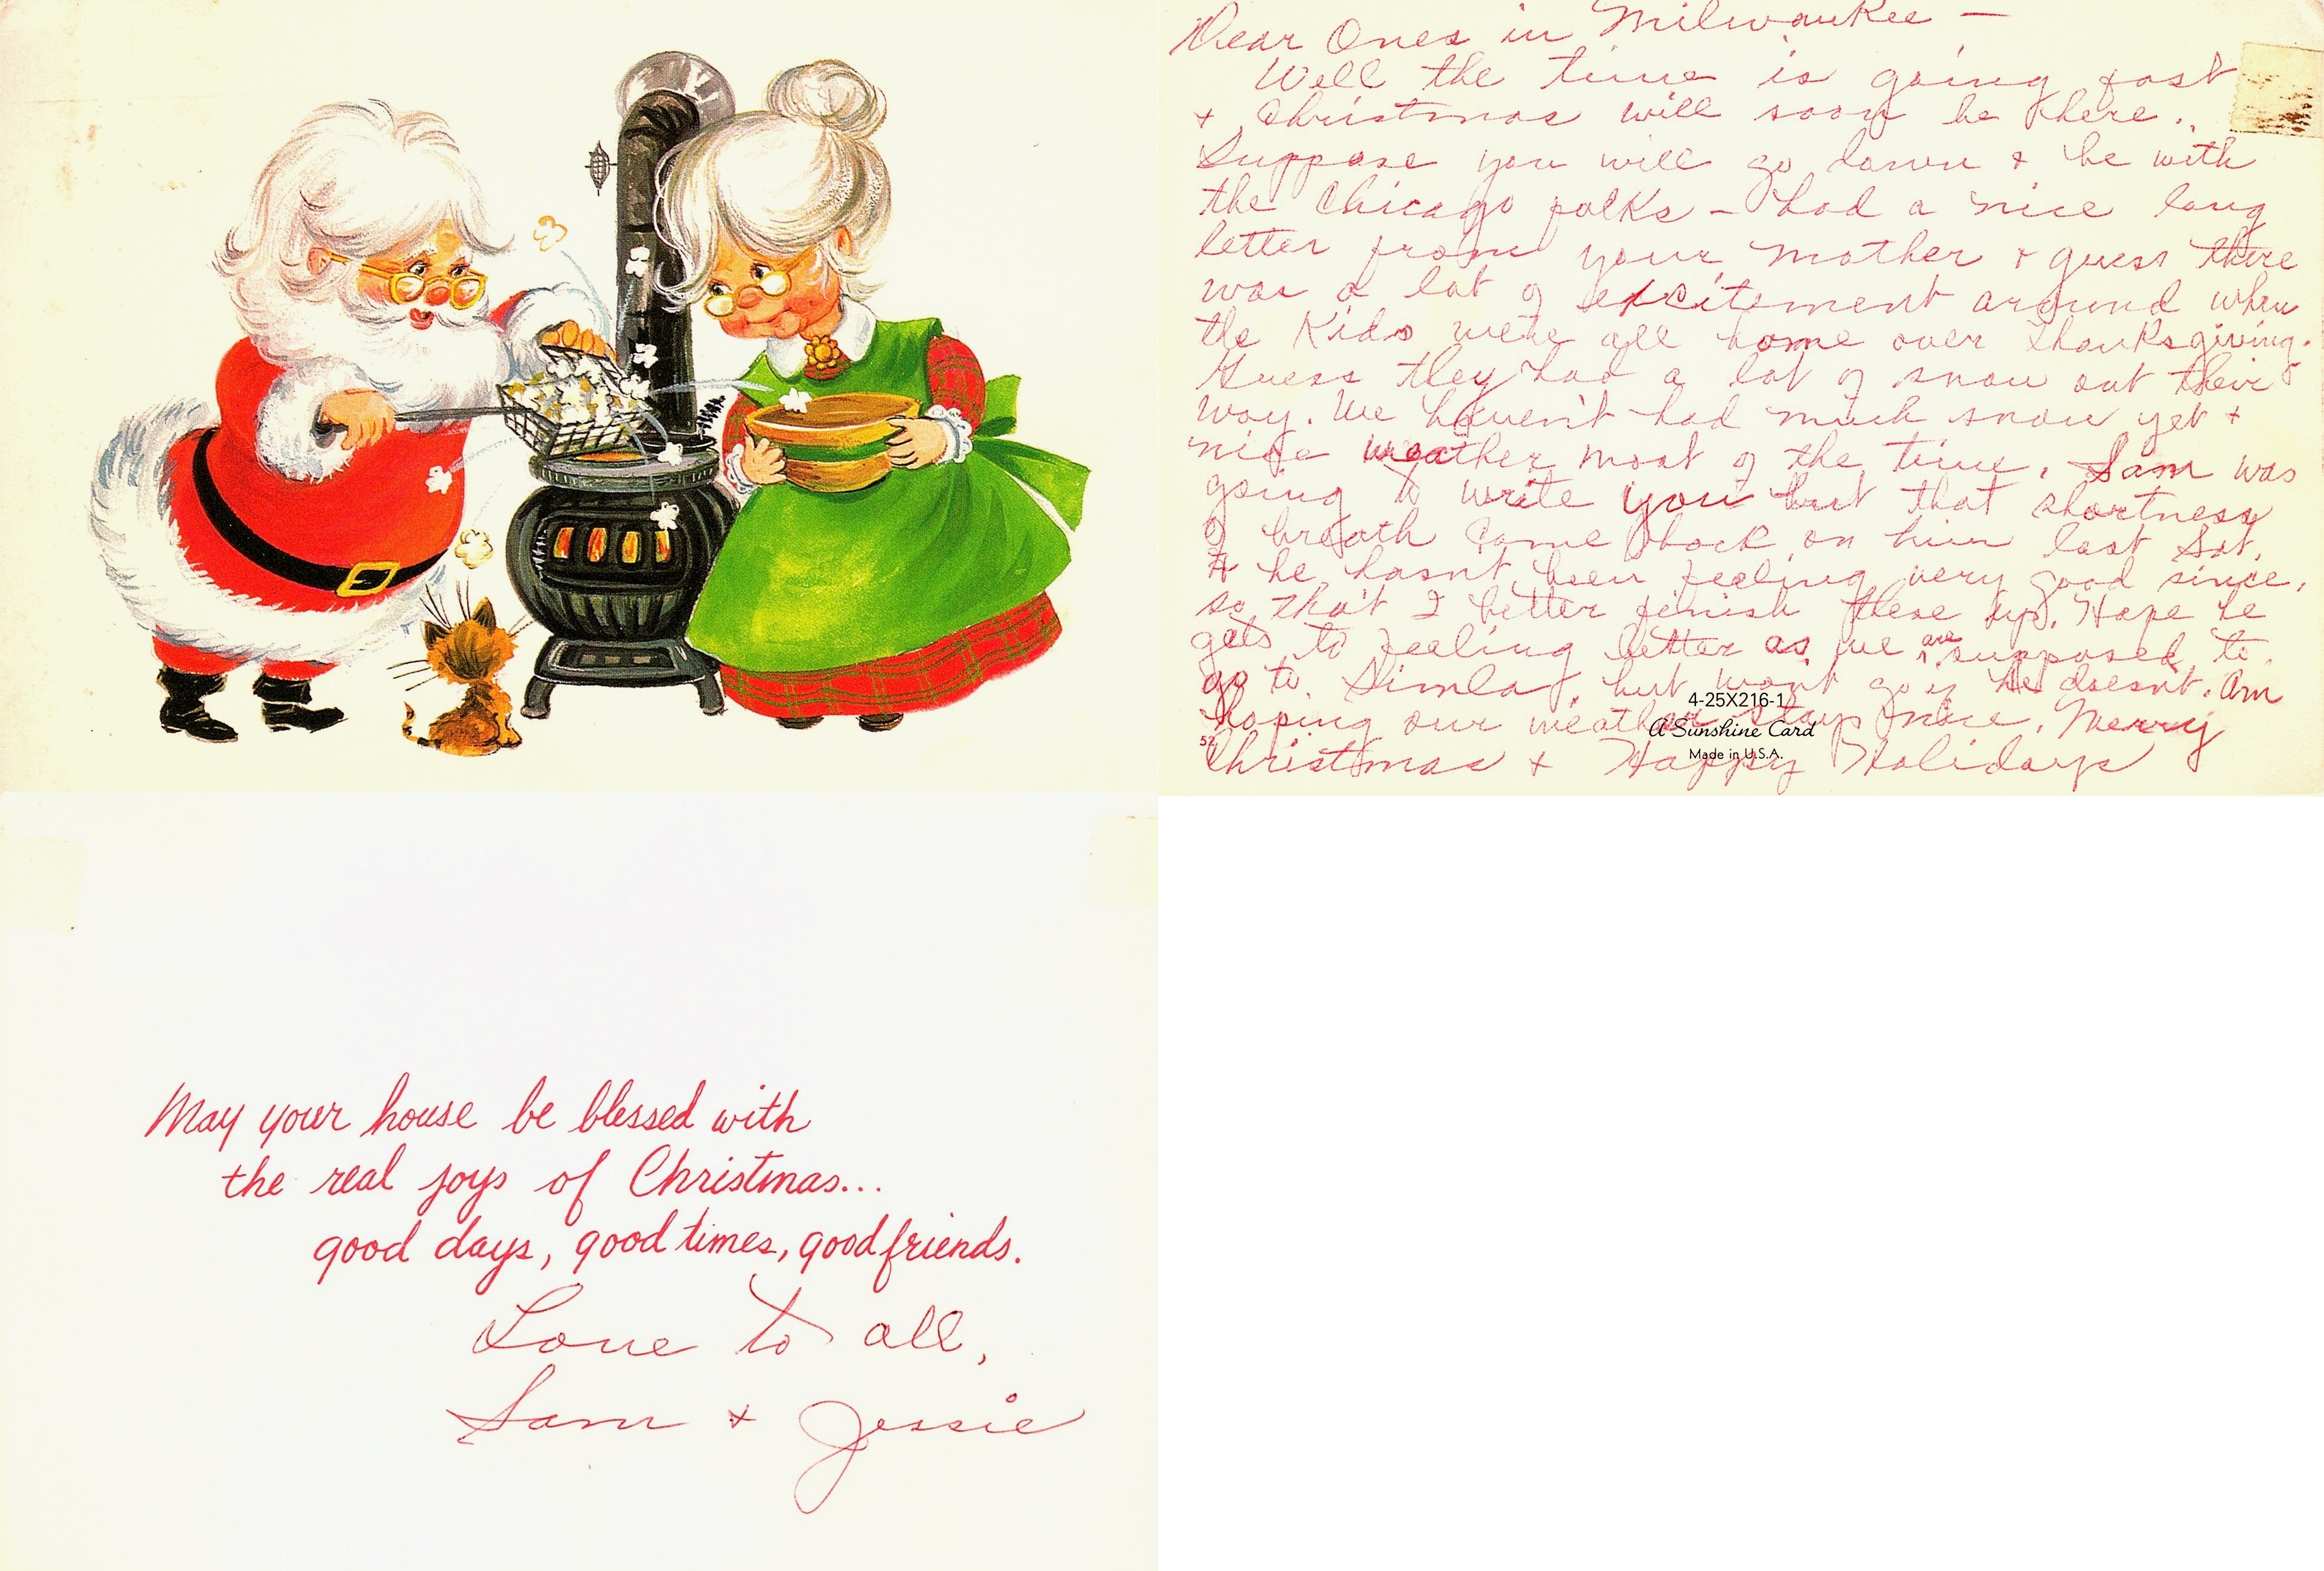 Dear Ones in Milwaukee —
Well the time is going fast
+ Christmas will soon be here.
Suppose you will go down + be with
the Chicago folks — had a nice long
letter from your mother + guess there
was a lot of excitement around when
the Kids were all home over Thanksgiving.
Guess they had a lot of snow out their
way. We haven't had much snow yet +
nice weather most of the time. Sam was
going to write you but that shortness
of breath came back on him last Sat.
+ he hasnt been feeling very good since,
so that I better finish these up. Hope he
gets to feeling better as we are supposed to
go to but wont go if he doesnt. Am
hoping our weather stays nice. Merry
Christmas + Happy Holidays
4-25X216-1
A Sunshine Card
Made in U.S.A.
52
May your house be blessed with
the real joys of Christmas...
good days, good times, good friends.
Love to all,
Sam + Jessie